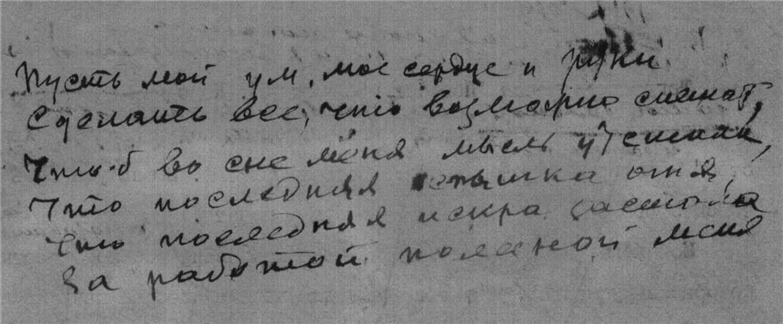 Пусть мой ум, мое сердце и руки
Сделать все, что возможно спешат,
Чтоб во сне меня мысль
Что последняя вспышка огня,
Что последняя искра застала
За работой полезной меня